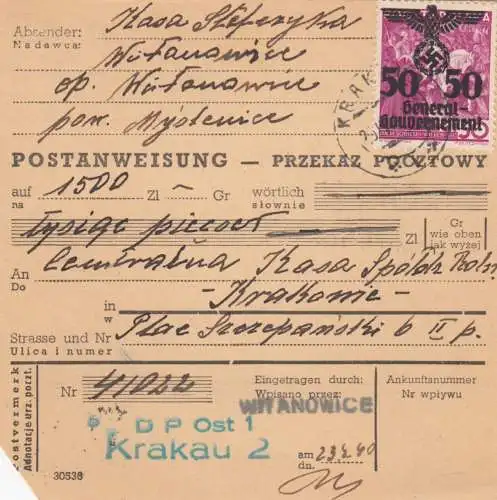 Absender:
Nadawca:
Kasa Stefczyka
Witanowice
op. Witanowice
pow. Myślenice
50 50
General-
Gouvernement
50
POSTANWEISUNG — PRZEKAZ POCZTOWY
auf
na
1500 Zl — Gr
wörtlich
słownie
tysiąc pięćset
Zl
Gr
wie oben
jak wyżej
An
Do
Centralna Kasa Spółdz.
in
w
- Krakowie -
Strasse und Nr
Ulica i numer
Plac Szczepański 6 II p.
Postvermerk
Adnotacje urz. poczt.
Nr 41022
Eingetragen durch:
Wpisano przez:
WITANOWICE
Ankunftsnummer
Nr wpływu
D P Ost 1
Krakau 2
am
dn.
30536